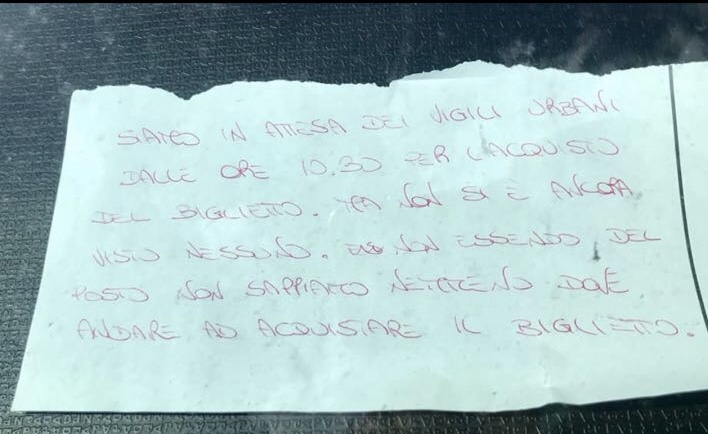 SIAMO IN ATTESA DEI VIGILI URBANI
DALLE ORE 10.30 PER L'ACQUISTO
DEL BIGLIETTO. MA NON SI È ANCORA
VISTO NESSUNO. NON ESSENDO DEL
POSTO NON SAPPIAMO NEMMENO DOVE
ANDARE AD ACQUISTARE IL BIGLIETTO.